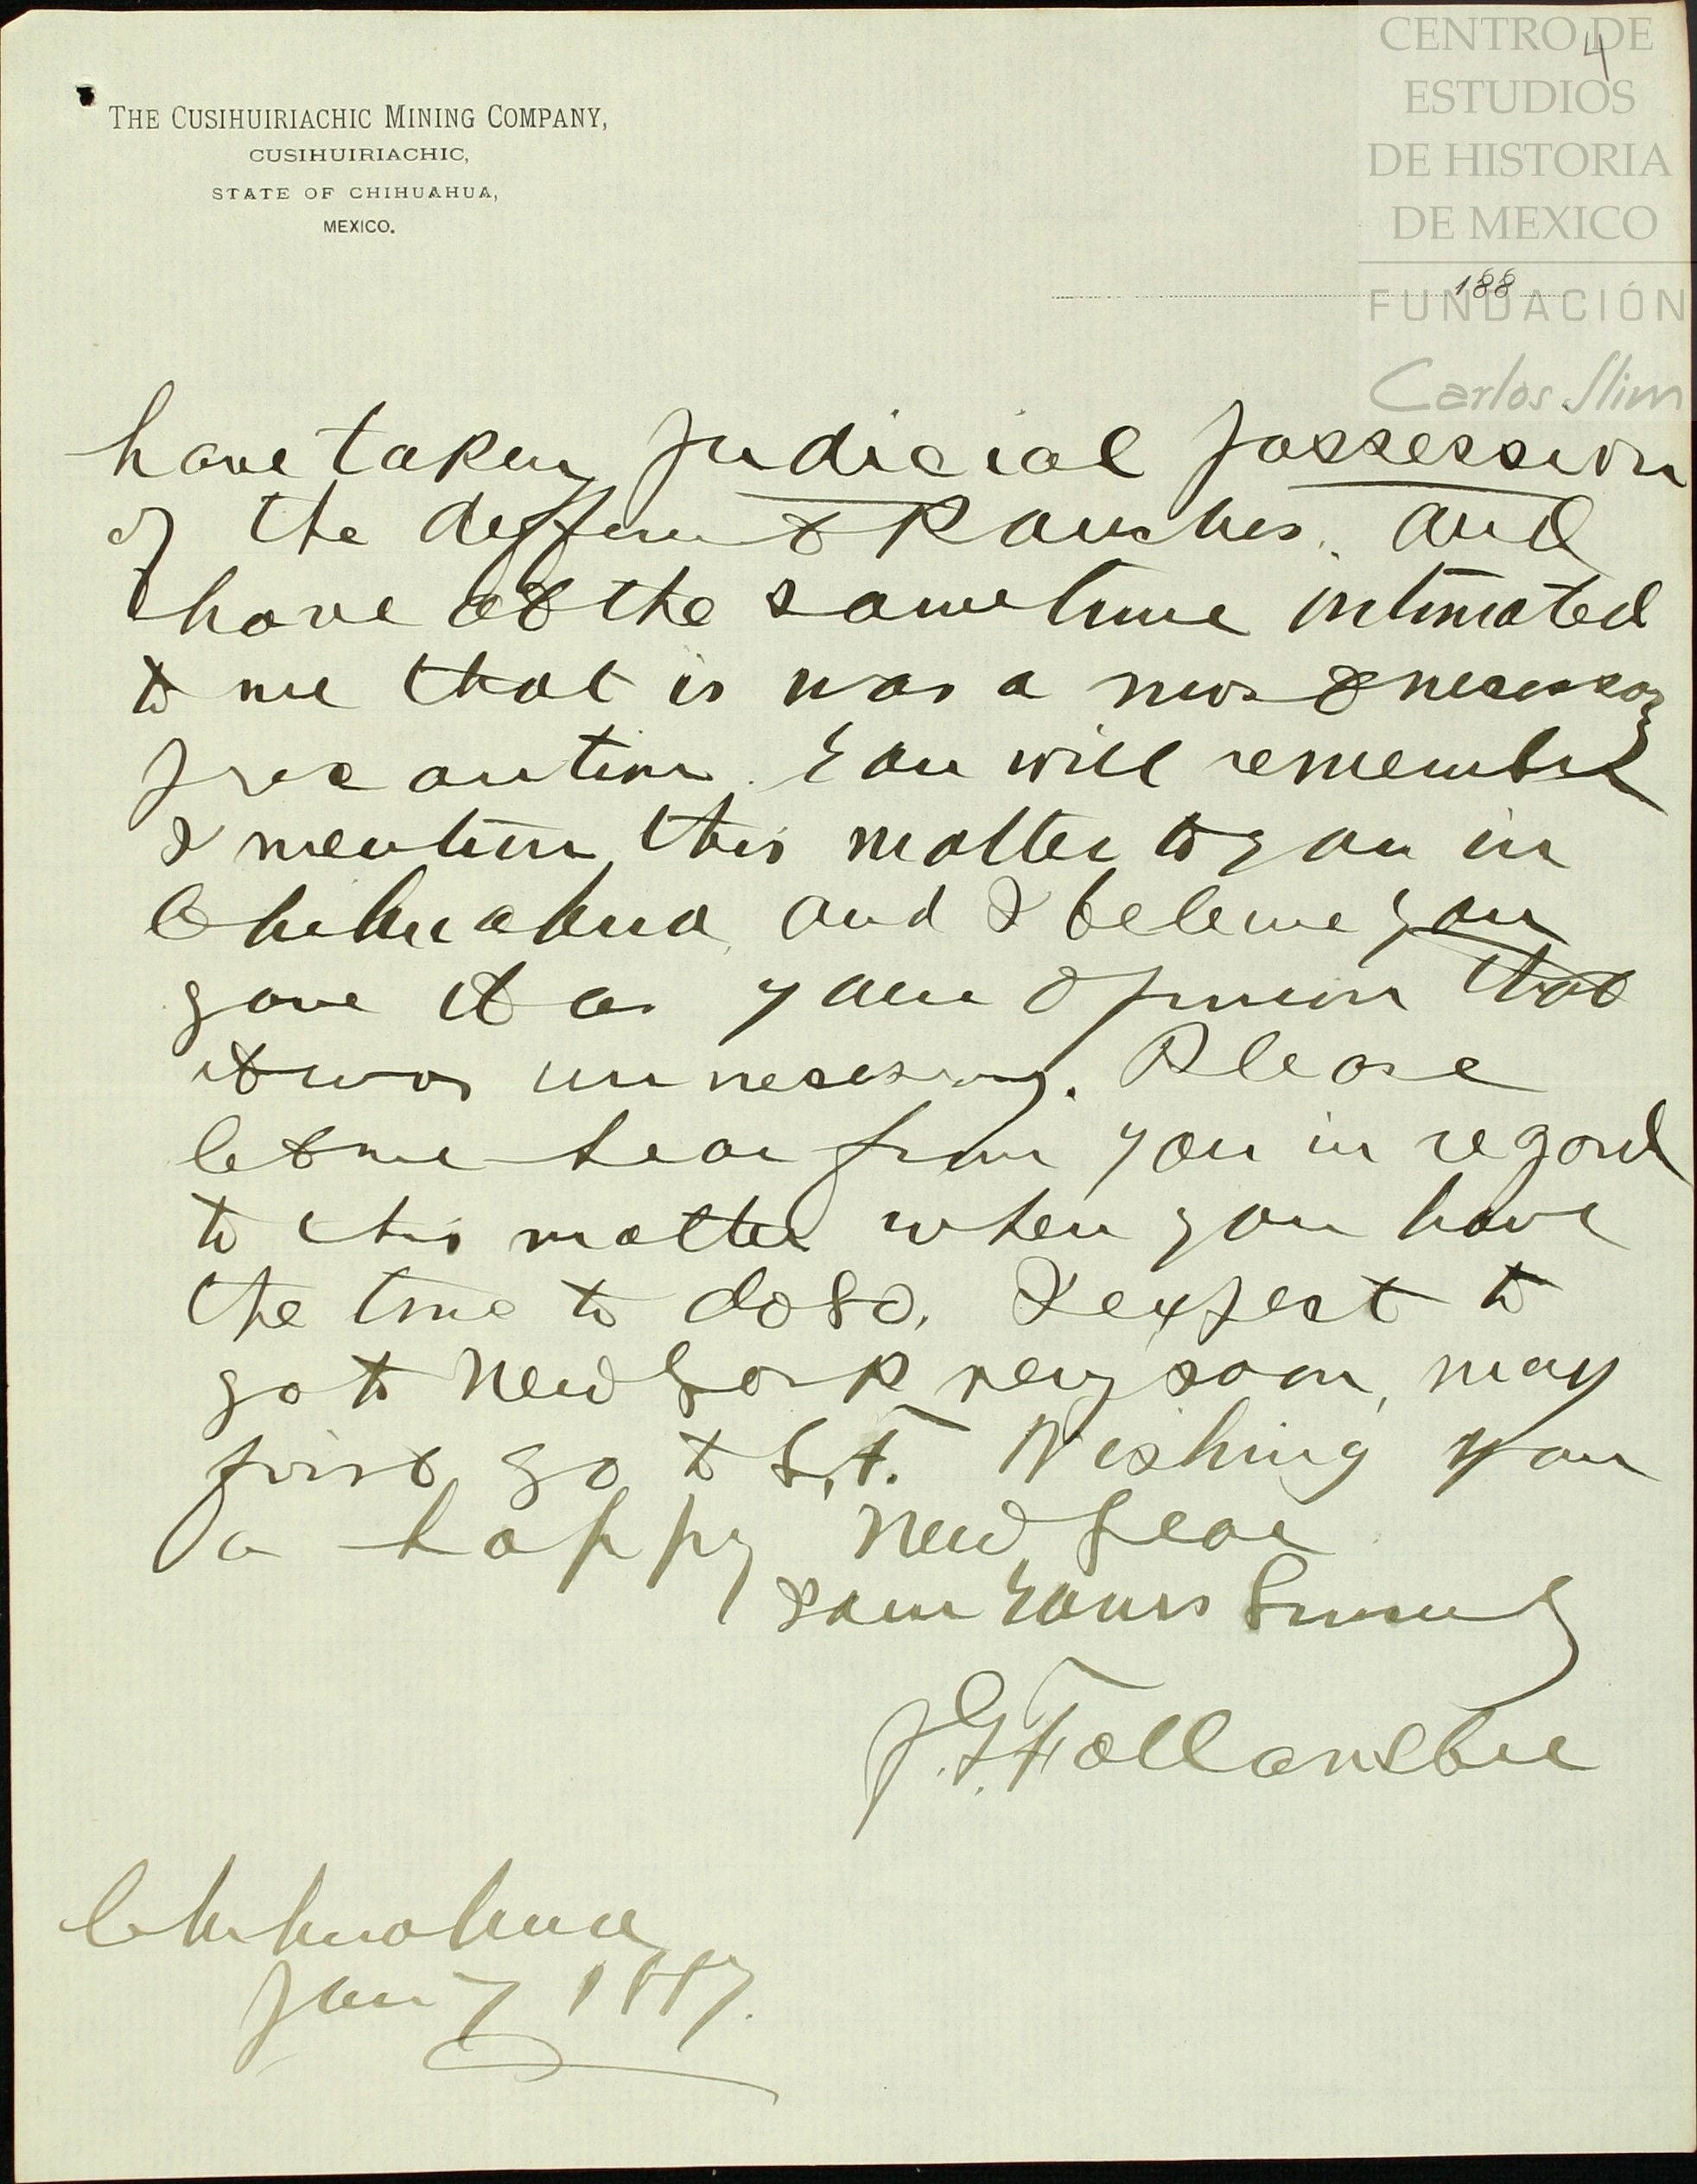 CENTRO DE
ESTUDIOS
DE HISTORIA
DE MEXICO
FUNDACIÓN
Carlos Slim
4
THE CUSIHUIRIACHIC MINING COMPANY,
CUSIHUIRIACHIC,
STATE OF CHIHUAHUA,
MEXICO.
188
have taken Judicial possession
of the different Ranches. and
have at the same time intimated
to me that is was a most necessary
precaution. You will remember
I mention this matter to you in
Chihuahua, and I beleive you
gave it as your opinion that
it was unnecessary. Please
let me hear from you in regard
to this matter when you have
the time to do so. I expect to
go to New York very soon, may
first go to S.F. Wishing you
a happy New Year
I am Yours Sincerely
J.G. Follansbee
Chihuahua
Jan 7 1887.